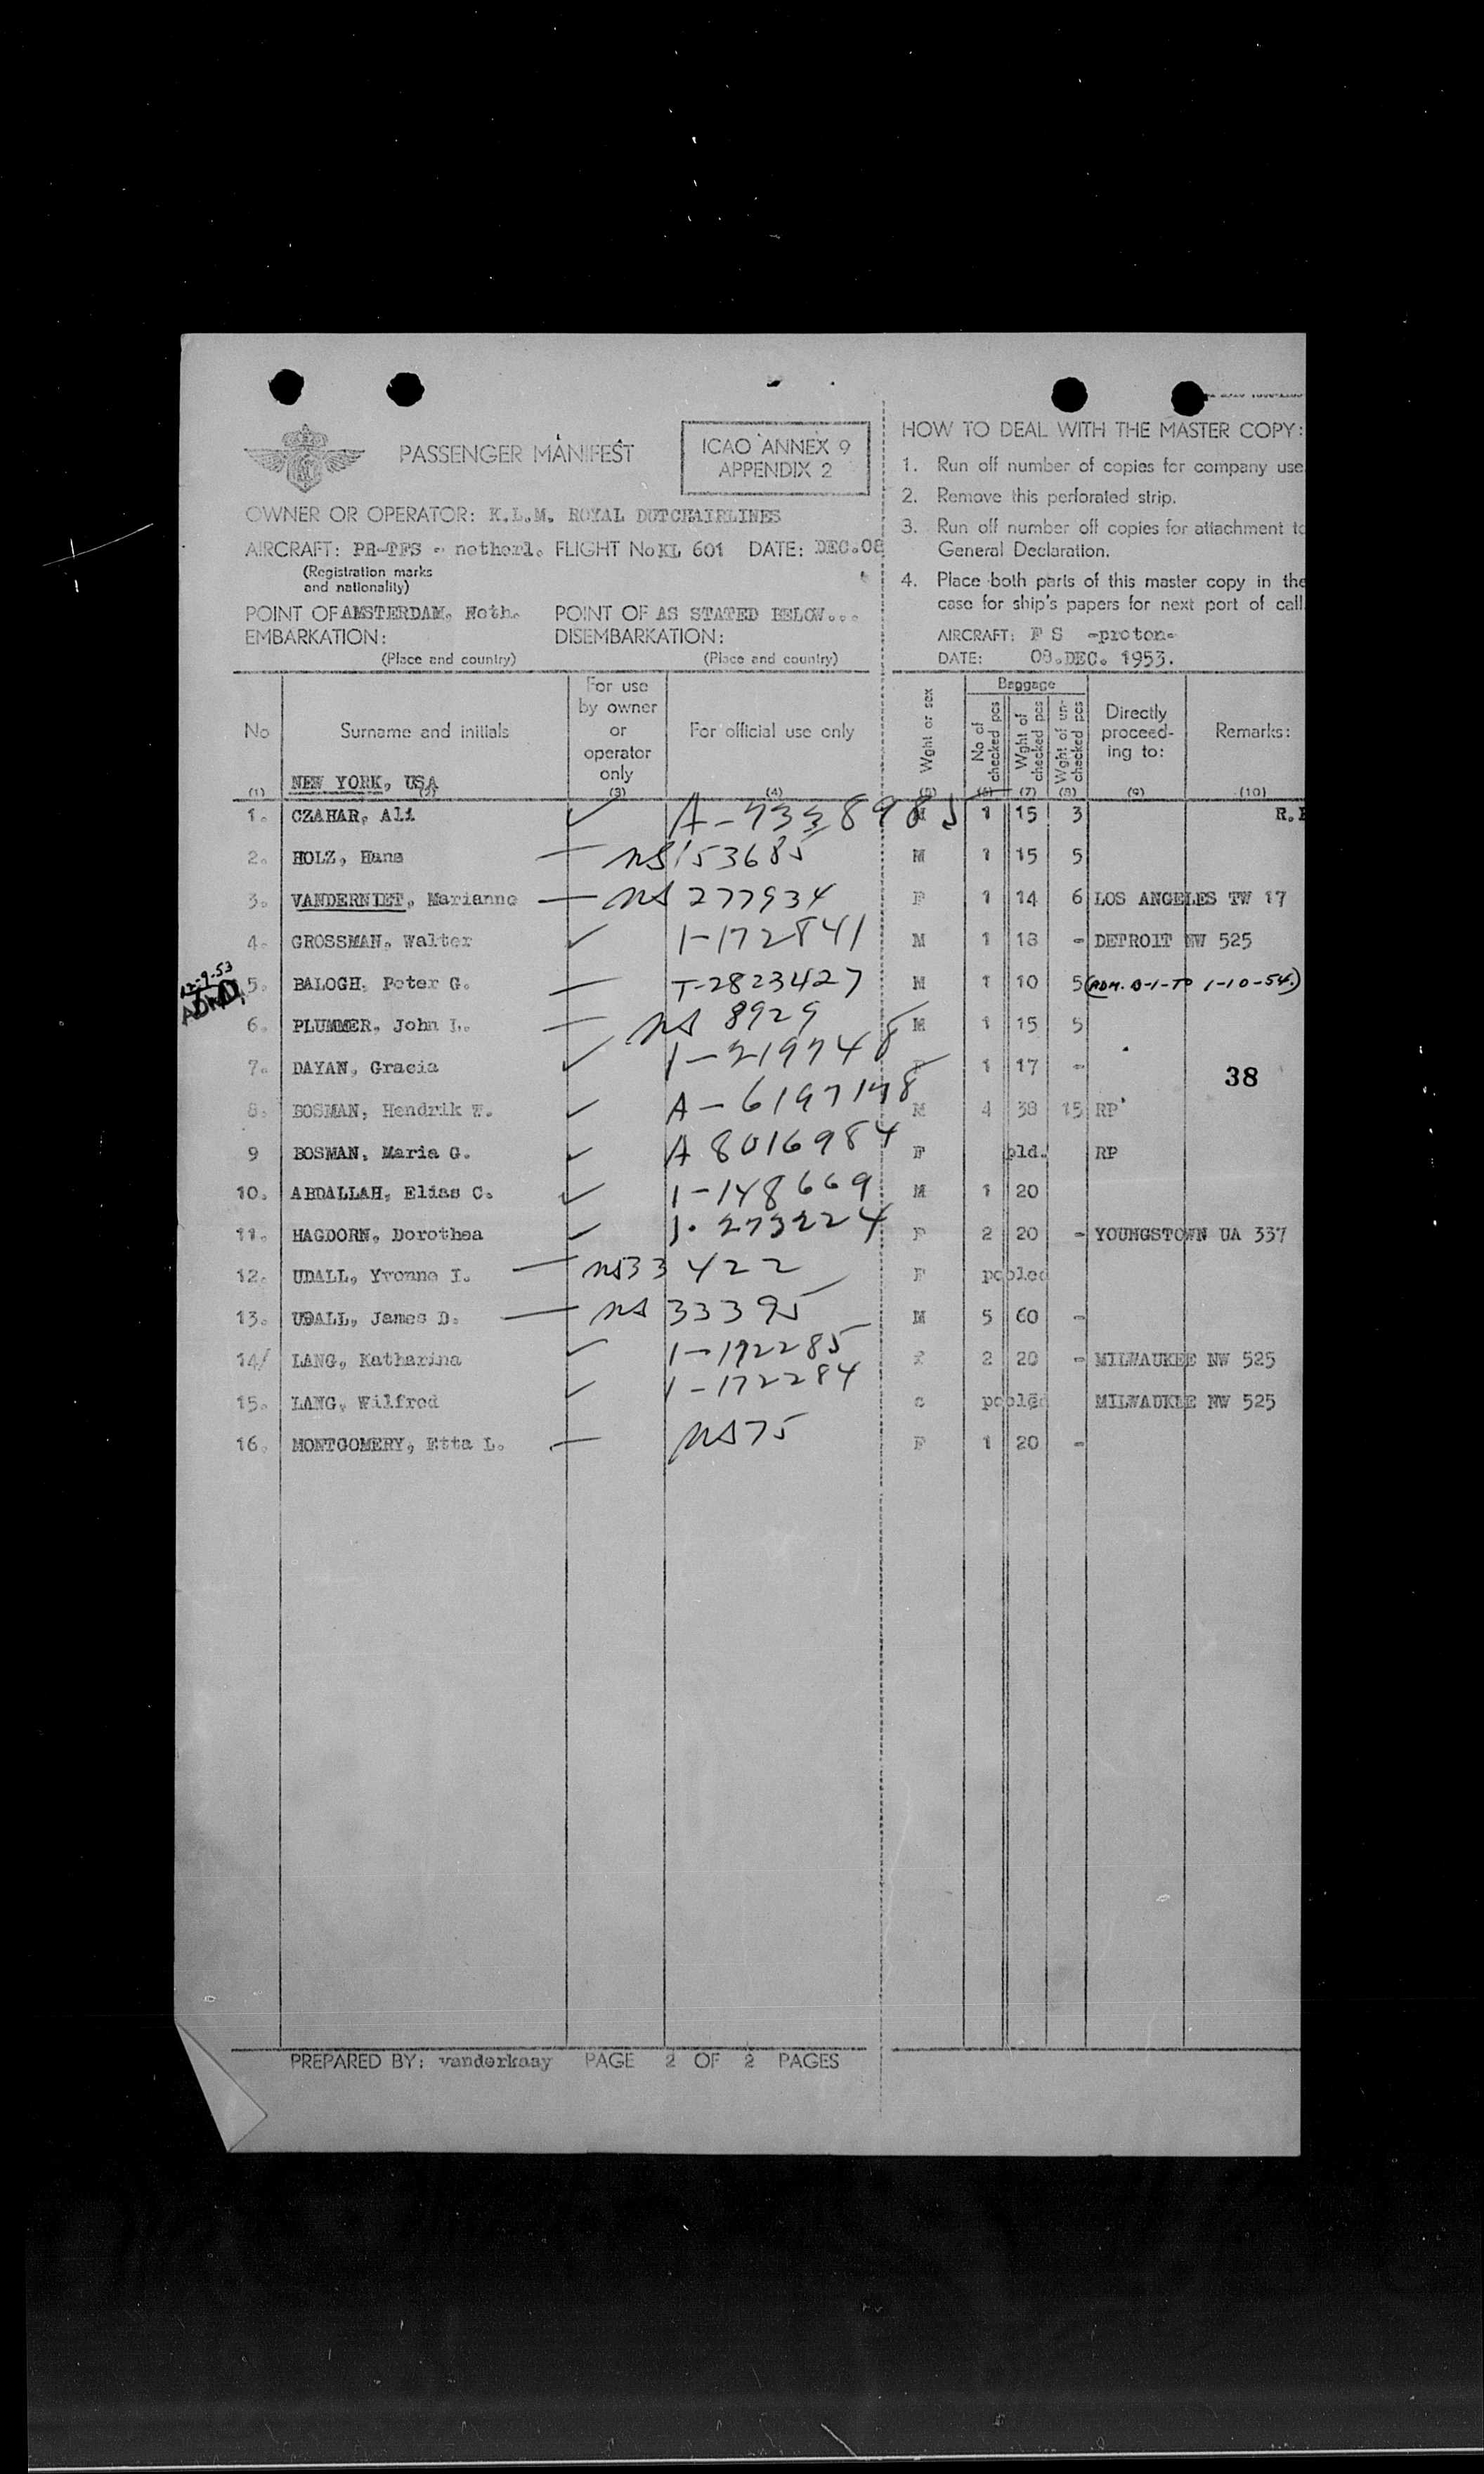 PASSENGER MANIFEST
ICAO ANNEX 9
APPENDIX 2
OWNER OR OPERATOR: K.L.M. ROYAL DUTCHAIRLINES
AIRCRAFT: PH-TFS - netherl. FLIGHT No KL 601 DATE: DEC.08
(Registration marks
and nationality)
POINT OF AMSTERDAM, Neth. POINT OF AS STATED BELOW...
EMBARKATION: DISEMBARKATION:
(Place and country) (Place and country)
HOW TO DEAL WITH THE MASTER COPY:
1. Run off number of copies for company use
2. Remove this perforated strip.
3. Run off number off copies for attachment to
General Declaration.
4. Place both parts of this master copy in the
case for ship's papers for next port of call
AIRCRAFT: F S -proton-
DATE: 08.DEC. 1953.
No
(1)
Surname and initials
NEW YORK, USA
(2)
For use
by owner
or
operator
only
(3)
For official use only
(4)
Wght or sex
(5)
Baggage
No of checked pcs
(6)
Wght of checked pcs
(7)
Wght of un-checked pcs
(8)
Directly
proceed-
ing to:
(9)
Remarks:
(10)
1. CZAHAR, Ali ✓ M 1 15 3
2. HOLZ, Hans — ns 153685 M 1 15 5
3. VANDERNIET, Marianne — ns 277934 F 1 14 6 LOS ANGELES TW 17
4. GROSSMAN, Walter ✓ 1-172841 M 1 18 - DETROIT NW 525
12-9-53
ADMD
5. BALOGH, Peter G. — T-2823427 M 1 10 5 (ADM. B-1-TO 1-10-54.)
6. PLUMMER, John L. — ns 8929 M 1 15 5
7. DAYAN, Gracia ✓ 1-219748 F 1 17 -
38
8. BOSMAN, Hendrik W. ✓ A-6197148 M 4 38 15 RP
9 BOSMAN, Maria G. ✓ A 8016984 F pld. RP
10. ABDALLAH, Elias C. ✓ 1-148669 M 1 20
11. HAGDORN, Dorothea ✓ 1-273224 F 2 20 - YOUNGSTOWN UA 337
12. UDALL, Yvonne I. — ns 33422 F pooled
13. UDALL, James D. — ns 33395 M 5 60 -
14/ LANG, Katharina ✓ 1-172285 f 2 20 - MILWAUKEE NW 525
15. LANG, Wilfred ✓ 1-172284 c pooled MILWAUKEE NW 525
16. MONTGOMERY, Etta L. — ns 75 F 1 20 -
PREPARED BY: vanderkaay PAGE 2 OF 2 PAGES